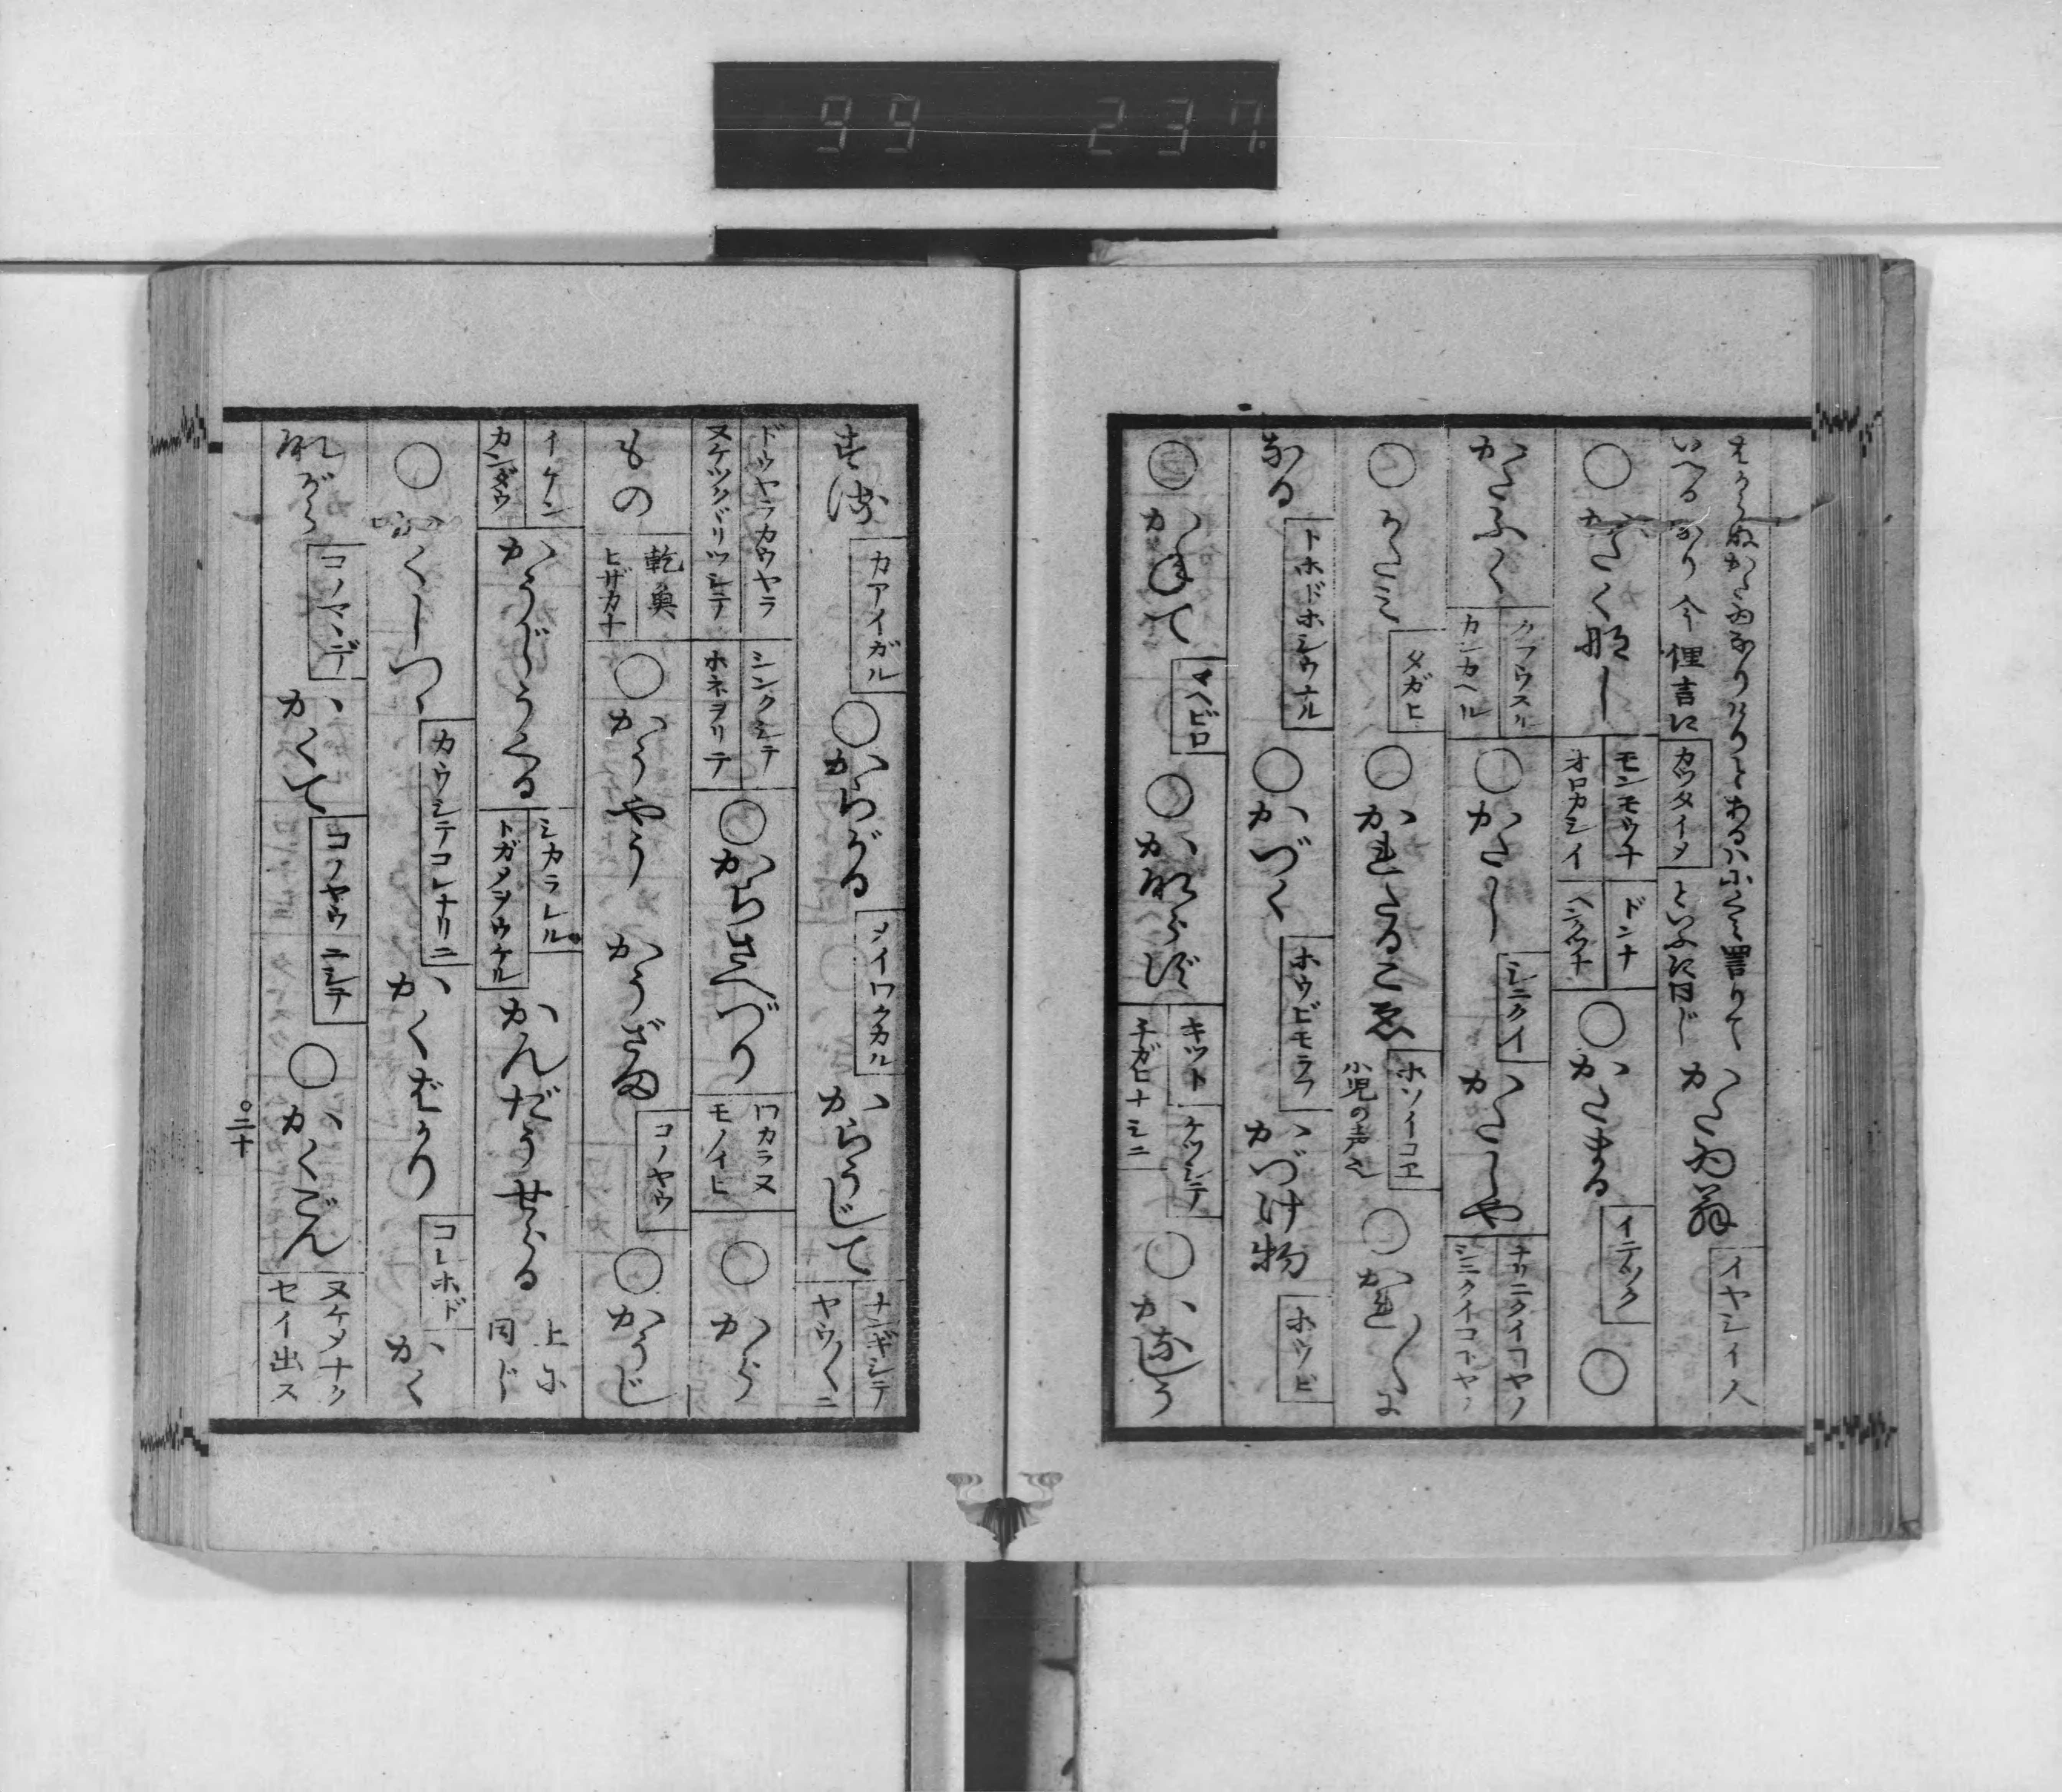 99 237.
いへるなり 今俚言に カツタイメ といふに同じ かたゐ翁 イヤシイ人
○かたく那し モンモウナ オロカシイ ドンナ ヘンクツナ ○かたまる イテツク ○
かたふく クフウスル カンカヘル ○かたし シニクイ かたしや ナリニクイコヤノ シニクイコトヤノ
○かたみ タガヒ ○かれたるこゑ ホソイコエ 小児の声也 ○かれ〳〵に
なる トホドホシウナル ○かづく ホウビモラフ かづけ物 ホウビ
○かねて マヘビロ ○かならず キツト チガヒナシニ ケツシテ ○かなしう
す流 カアイガル ○からがる メイワクカル からうじて ナンギシテ ヤウ〳〵ニ
ドウヤラカウヤラ ヌケツクヾリツシテ シンクシテ ホネヲリテ ○からさへづり ワカラヌ モノイヒ ○から
もの 乾魚 ヒザカナ ○かうやう かうざま コノヤウ ○かうじ
イケン カンダウ かうじうくる シカラレル トガメヲウケル かんだうせらる 上に 同じ
○かくしつゝ カウシテコレナリニ かくばかり コレホド かく
ながら コノマヽデ かくて コノヤウニシテ ○かくごん ヌケメナク セイ出ス
○二十